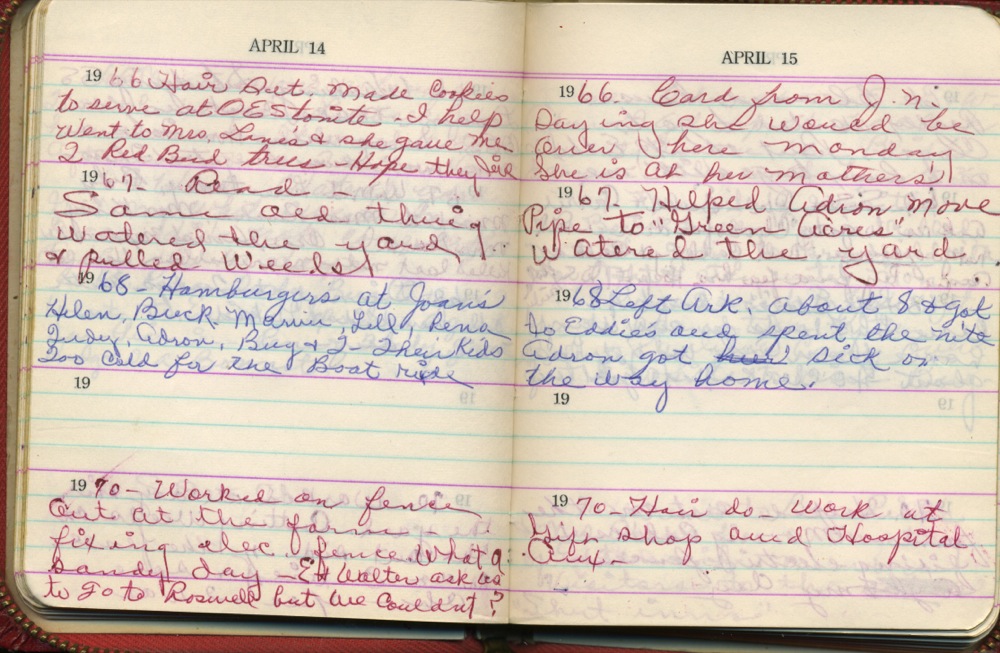 APRIL 14
1966 Hair Set. Made Cookies
to serve at OES tonite - I help
Went to Mrs. Lane's & she gave me
2 Red Bud trees - Hope they
1967 - Read -
Same old thing
Watered the yard
& pulled weeds
1968 - Hamburgers at Joan's
Helen, Buck, Lell, Rena
Judy, Adron, Bug & I - Their Kids
Too cold for the Boat ride
19
1970 - Worked on fence
out at the farm -
fixing elec. fence. What a
sandy day - Ed Walter ask us
to go to Roswell but we couldn't?
APRIL 15
1966. Card from J.N.
Saying she would be
over here Monday
She is at her mothers
1967. Helped Adron move
Pipe to "Green Acres"
Watered the yard.
1968 Left Ark. about 8 & got
to Eddie's and spent the nite
Adron got sick on
the way home.
19
1970 - Hair do - Work at
Gift Shop and Hospital
Aux -